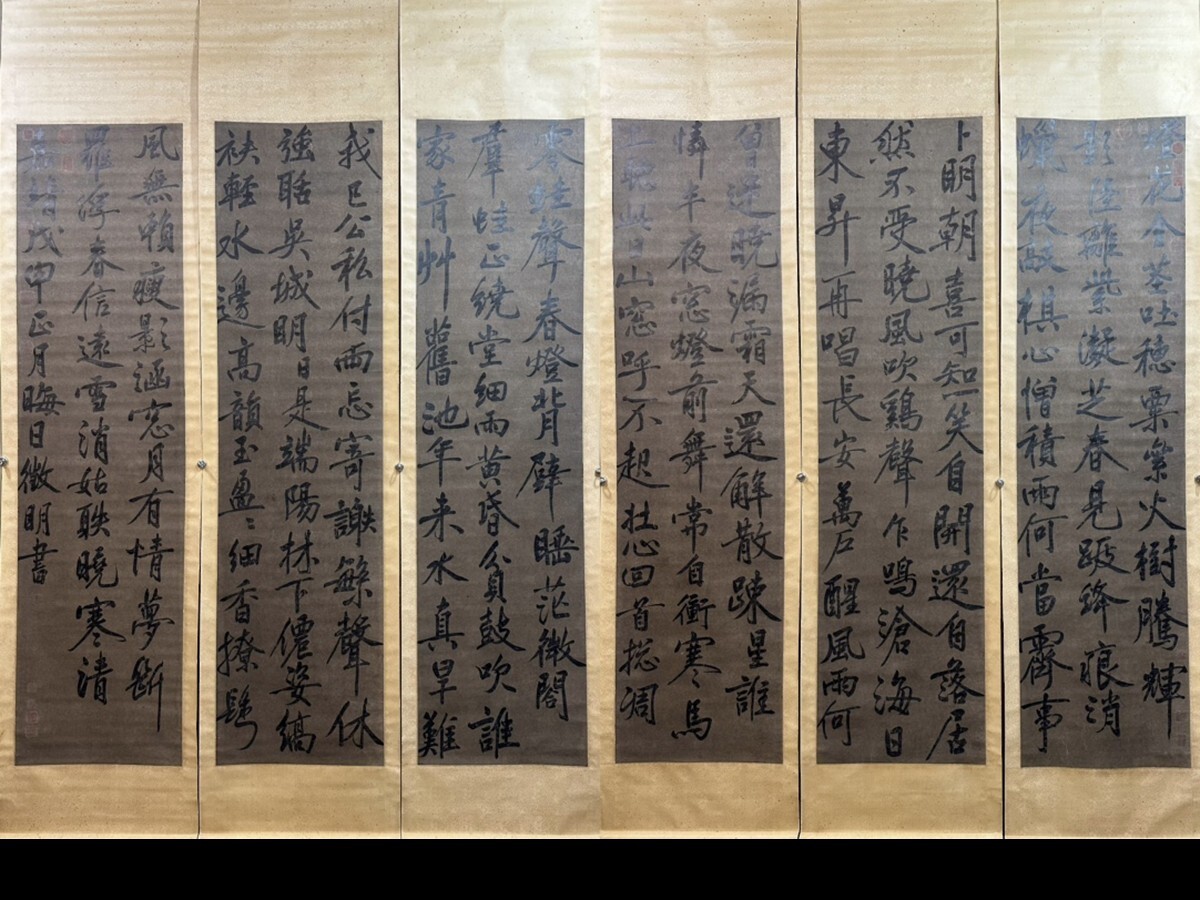 燈花金莖吐穗粟纍纍火樹騰輝
影陸離紫凝芝春見跋鋒痕消
蠟夜敲棋心憎積雨何當霽事
卜明朝喜可知一笑自開還自落居
然不受曉風吹鷄聲乍鳴滄海日
東昇再唱長安萬戶醒風雨何
曾迷曉漏霜天還解散踈星誰
憐半夜窓燈前舞常自衝寒馬
上聽此日山窓呼不起壯心回首捴凋
零蛙聲春燈背壁睡茫微閣
羣蛙正繞堂細雨黄昏貧鼓吹誰
家青艸舊池年来水真旱難
我已公私付兩忘寄謝繁聲休
強聒吳城明日是端陽林下僊姿縞
袂輕水邊高韻玉盈盈細香撩鬢
風無賴瘦影涵窓月有情夢斷
羅浮春信遠雪消姑射曉寒清
嘉靖戊申正月晦日徵明書